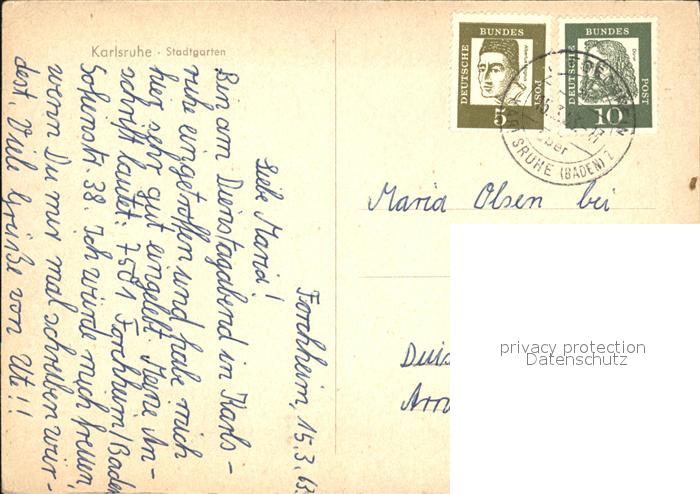 Karlsruhe - Stadtgarten
Forchheim, 15.3.63.
Liebe Maria!
Bin am Dienstagabend in Karls-
ruhe eingetroffen und habe mich
hier sehr gut eingelebt. Meine An-
schrift lautet: 7501 Forchheim/Baden
Sofienstr. 38. Ich würde mich freuen,
wenn Du mir mal schreiben wür-
dest. Viele Grüße von Ute!!
DEUTSCHE
BUNDES
POST
5
DEUTSCHE
BUNDES
POST
10
über
KARLSRUHE (BADEN) 2
Maria Olsen bei
privacy protection
Datenschutz